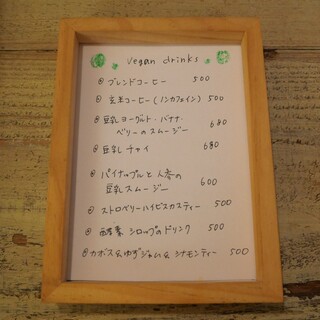 vegan drinks
◎ ブレンドコーヒー 500
◎ 玄米コーヒー(ノンカフェイン) 500
◎ 豆乳ヨーグルト・バナナ・
ベリーのスムージー 680
◎ 豆乳チャイ 680
◎ パイナップルと人参の
豆乳スムージー 600
◎ ストロベリーハイビスカスティー 500
◎ 酵素シロップのドリンク 500
◎ カボス&ゆずジャム& シナモンティー 500